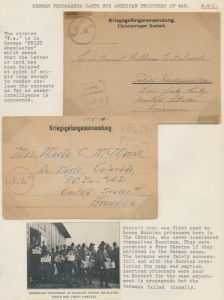 GERMAN PROPAGANDA CAMPS FOR AMERICAN PRISONERS OF WAR. W.W.I.
The circled
"F.a." is in
German "FRIST
abgelaufen"
which means that
the letter
or card has
been delayed
at point of ori-
gin long enough
to render use-
less the contents
so far as espi-
onage
is
concerned.
Kriegsgefangenensendung.
F.a.
Lieutenant William
New York City
United States
America
Kriegsgefangenensendung.
F.a.
Mrs.
Del Norte Colorado
Box 462
United States of
America
AMERICAN PRISONERS AT RASTATT PRISON RECEIVING
THEIR RED CROSS PARCELS
Rastatt camp was first used to
house Russian prisoners born in
the Ukraine, who never considered
themselves Russians. They were
promised a Free Ukraine if they
enlisted in the German cause.
The Germans were fairly success-
ful and with the Russian revolu-
tion the camp was emptied.
American prisoners were sent
to Rastatt for the same experi-
ment in propaganda but the
Germans failed dismally.